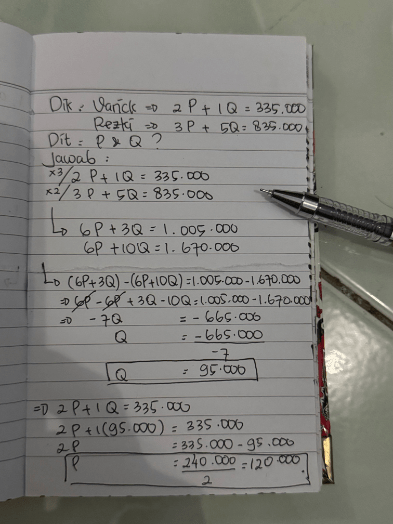 Dik : Varick => 2P + 1Q = 335.000
Rezki => 3P + 5Q = 835.000
Dit : P & Q ?
Jawab :
x3/ 2P + 1Q = 335.000
x2/ 3P + 5Q = 835.000
↳ 6P + 3Q = 1.005.000
6P + 10Q = 1.670.000
↳ (6P+3Q) - (6P+10Q) = 1.005.000 - 1.670.000
=> 6P - 6P + 3Q - 10Q = 1.005.000 - 1.670.000
=> -7Q = -665.000
Q = -665.000
-7
Q = 95.000
=> 2P + 1Q = 335.000
2P + 1(95.000) = 335.000
2P = 335.000 - 95.000
P = 240.000 = 120.000
2